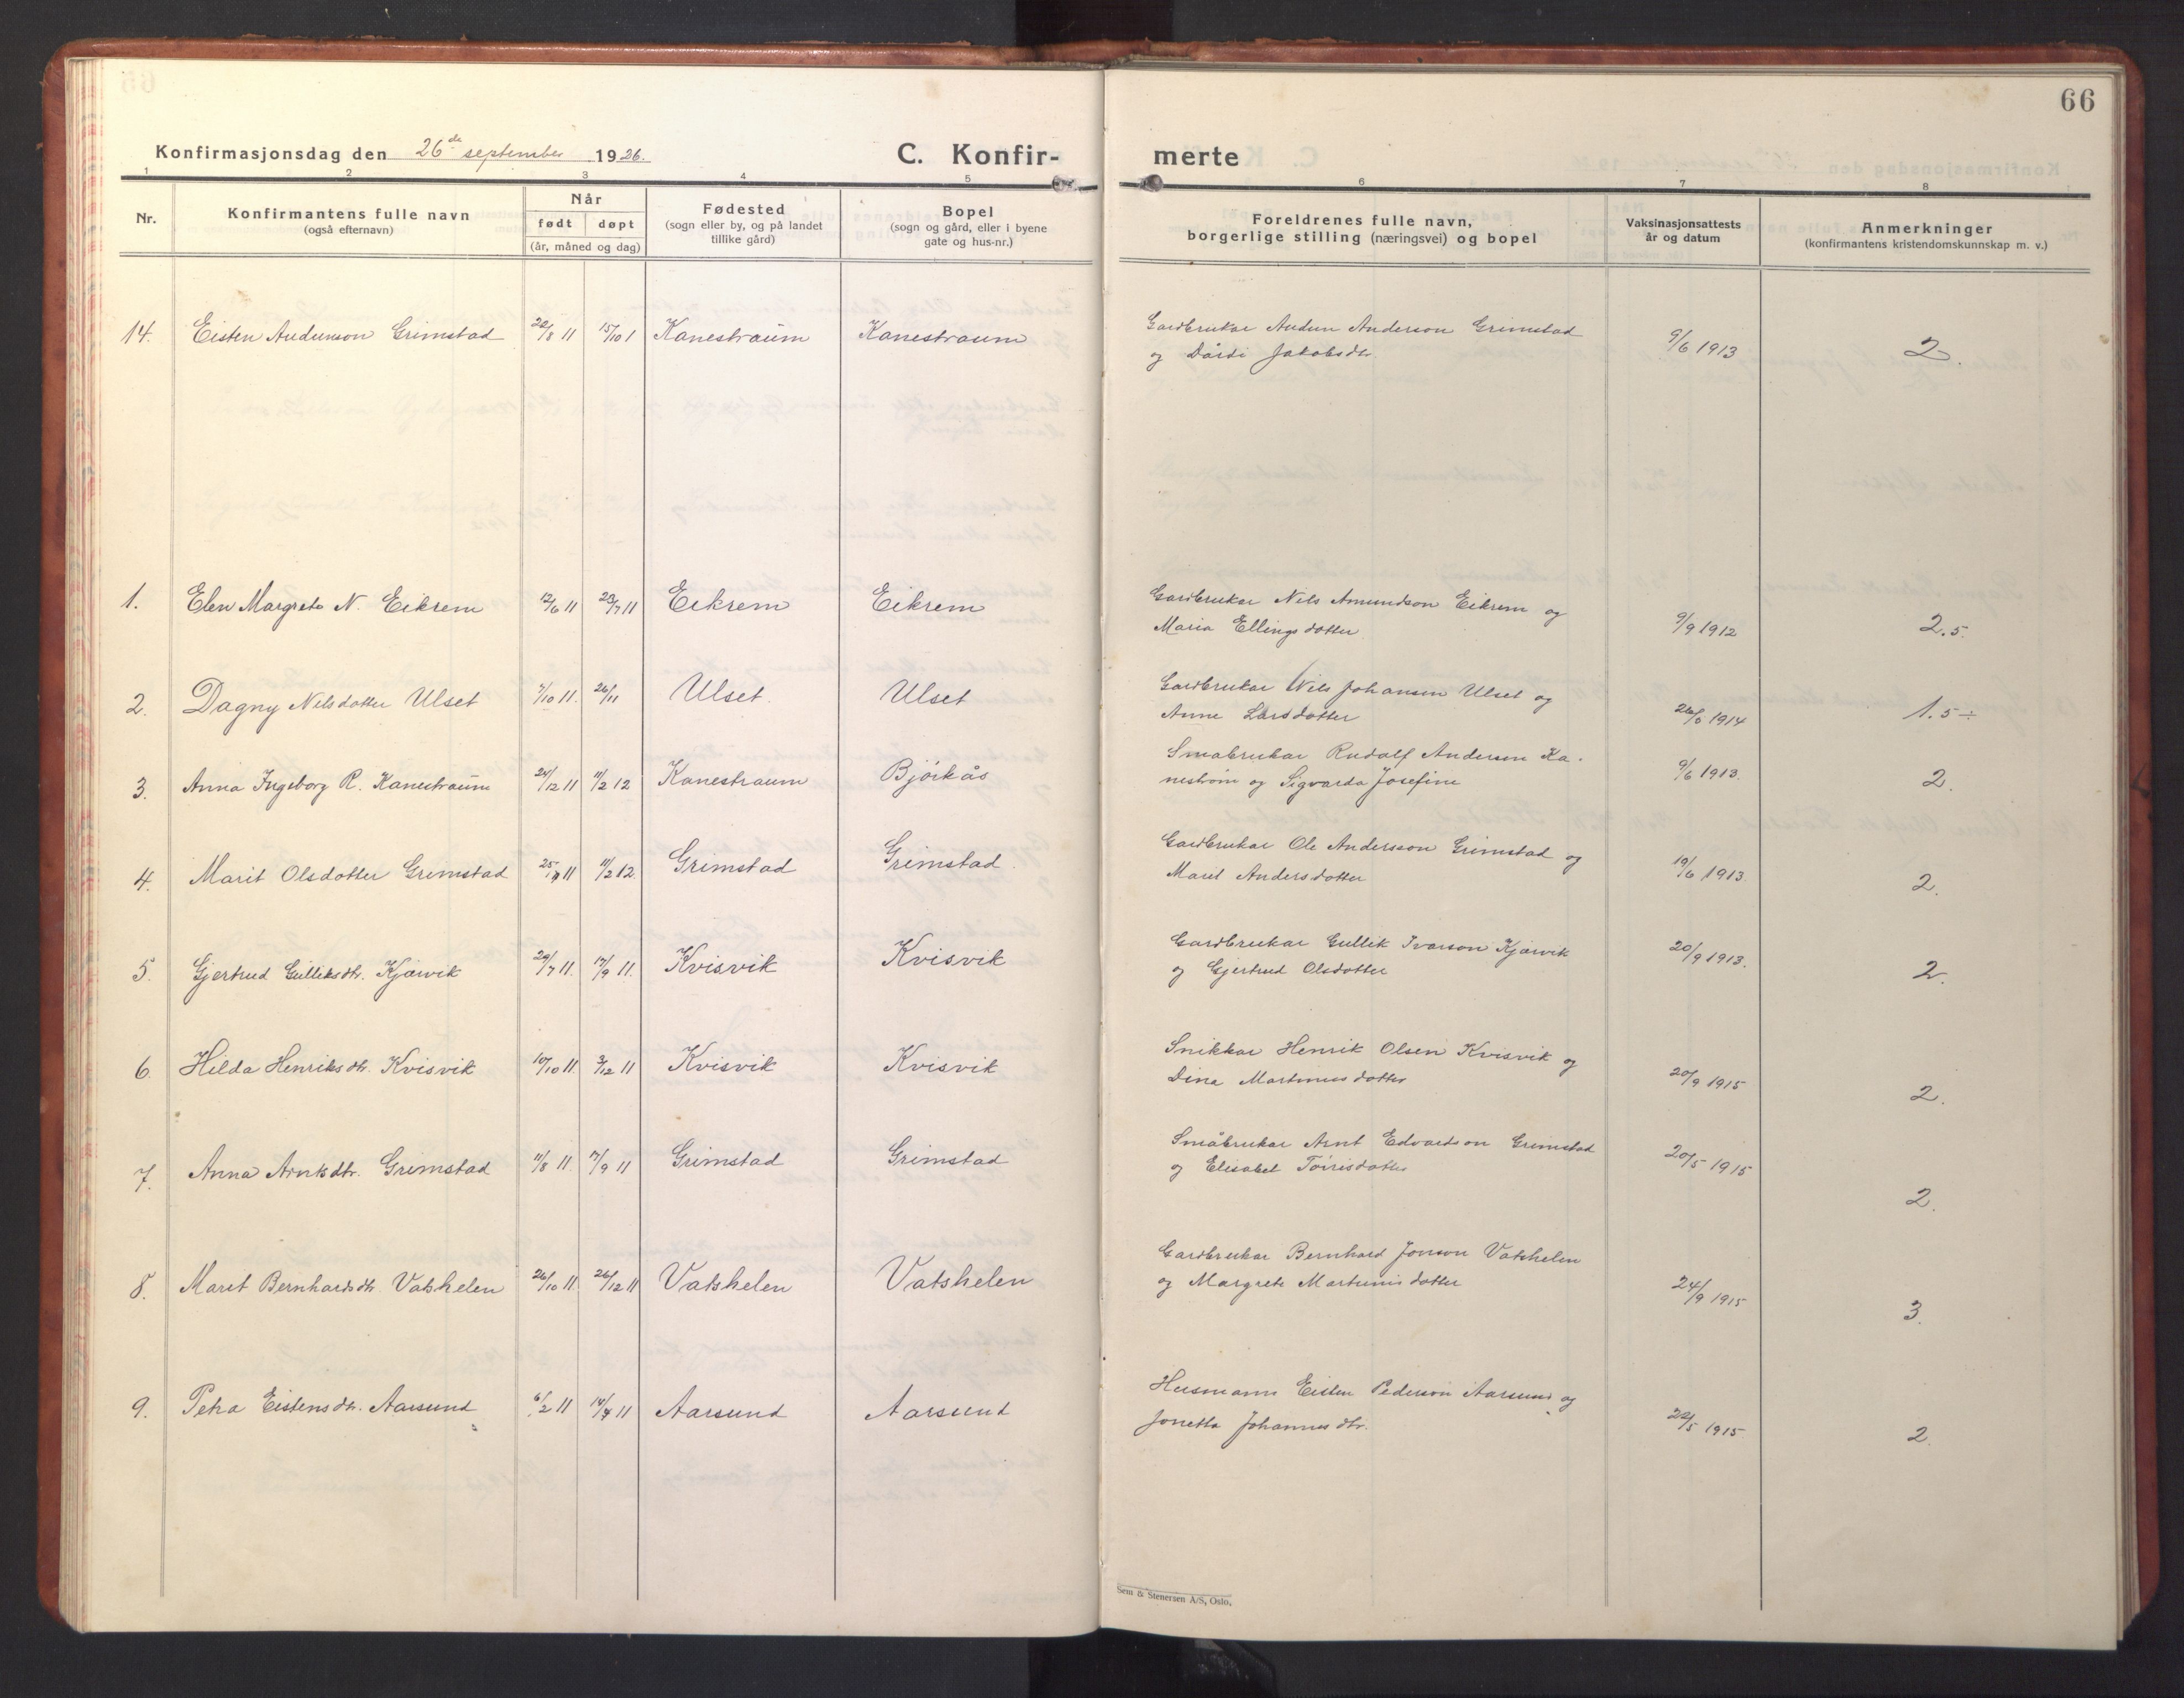 66
Konfirmasjonsdag den 26de september 1926.
C. Konfir-
merte
1 2 3 4 5 6 7 8
Nr.
Konfirmantens fulle navn
(også efternavn)
Når
født døpt
(år, måned og dag)
Fødested
(sogn eller by, og på landet
tillike gård)
Bopel
(sogn og gård, eller i byene
gate og hus-nr.)
Foreldrenes fulle navn,
borgerlige stilling (næringsvei) og bopel
Vaksinasjonsattests
år og datum
Anmerkninger
(konfirmantens kristendomskunnskap m. v.)
14. Eisten Audunson Grimstad 22/8 11 15/10 1 Kanestraum Kanestraum
Gardbrukar Audun Anderson Grimstad
og Dårdi Jakobsdtr. 9/6 1913 2.
1. Elen Margrete N. Eikrem 12/6 11 23/7 11 Eikrem Eikrem
Gardbrukar Nils Amundson Eikrem og
Maria Ellingsdotter 9/9 1912 2.5.
2. Dagny Nilsdotter Ulset 7/10 11. 26/11 Ulset. Ulset
Gardbrukar Nils Johansen Ulset og
Anne Larsdotter 26/6 1914 1.5 ÷
3. Anna Ingeborg R. Kanestraum 24/12 11 11/2 12 Kanestraum Bjørkås
Småbrukar Rudolf Andersen Ka-
nestrøm og Sigvarda Josefine 9/6 1913. 2.
4. Marit Olsdotter Grimstad 11/2 12. Grimstad Grimstad.
Gardbrukar Ole Andersson Grimstad og
Marit Andersdotter 19/6 1913. 2.
5. Gjertrud Gulliksdtr. Kjørvik 29/7 11. 17/9 11. Kvisvik Kvisvik
Gardbrukar Gullik Ivarson Kjørvik
og Gjertrud Olsdotter 20/9 1913. 2.
6. Hilda Henriksdtr. Kvisvik 10/10 11. 3/12 11 Kvisvik Kvisvik
Snikkar Henrik Olsen Kvisvik og
Dina Martinusdotter 20/9 1915 2.
7. Anna Arntsdtr. Grimstad 11/8 11. 17/9 11 Grimstad Grimstad
Småbrukar Arnt Edvardson Grimstad
og Elisabet Tørrisdotter 20/5 1915 2.
8. Marit Bernhardsdtr. Vatshelen 26/10 11. 26/12 11 Vatshelen Vatshelen
Gardbrukar Bernhard Jonson Vatshelen
og Margrete Martinusdotter 24/9 1915 3.
9. Petra Eistensdtr. Aarsund 6/2 11 14/4 11 Aarsund Aarsund
Husmann Eisten Pederson Aarsund og
Jonetta Johannesdtr. 22/5 1915 2.
Sem & Stenersen A/S, Oslo.